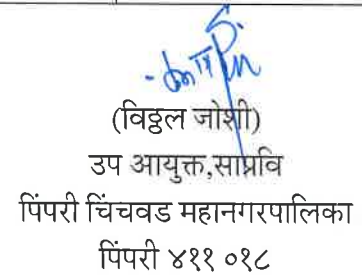 (विठ्ठल जोशी)
उप आयुक्त,साप्रवि
पिंपरी चिंचवड महानगरपालिका
पिंपरी ४११ ०१८